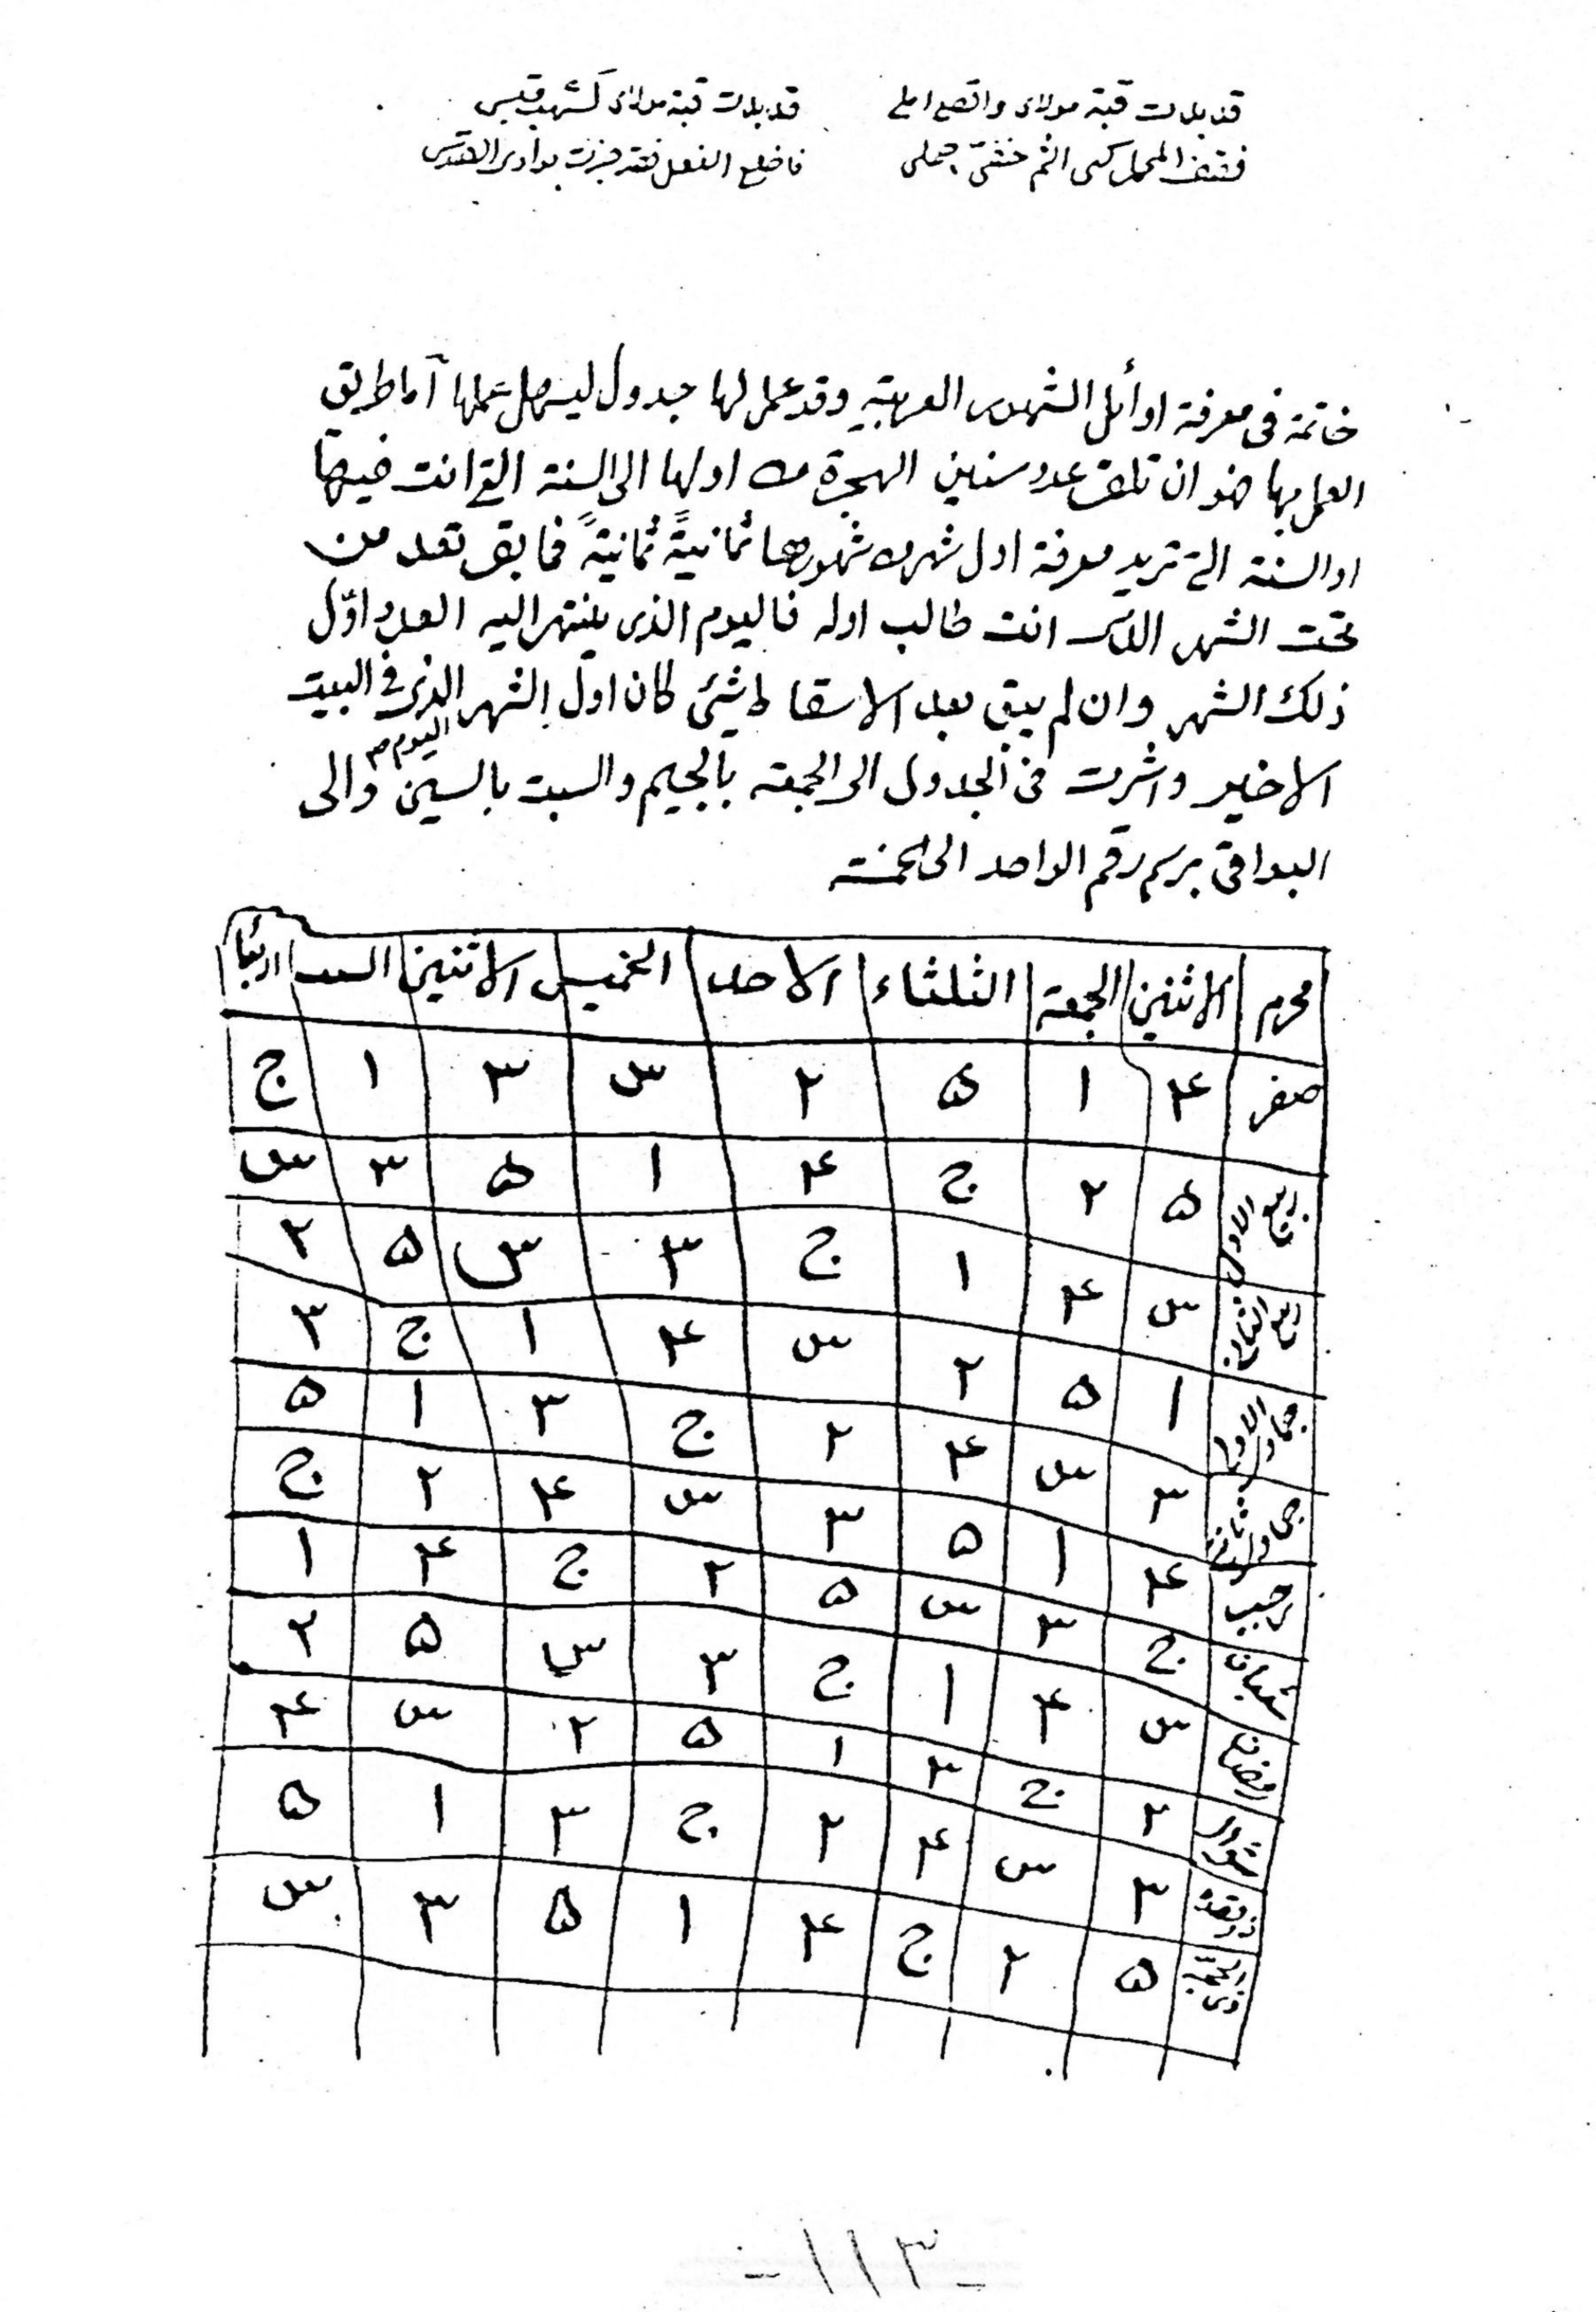 قد بدت قبة مولاى واتضع املى
قد بدت قبة مولاى كشهب قبس
فقف المحمل كى الثم خفى جملى
فاخلع النعل فقد جزت بوادى القدس
خاتمة فى معرفة اوائل الشهور العربية وقد عمل لها جدول ليسهل عملها اما طريق
العمل بها فهو ان تلقى عدد سنين الهجرة من اولها الى السنة التى انت فيها
او السنة التى تريد معرفة اول شهر من شهورها ثمانيةً ثمانيةً فما بقى تعد من
تحت الشهر الذى انت طالب اوله فاليوم الذى ينتهى اليه العدد اوّل
ذلك الشهر وان لم يبق بعد الاسقاط شئ كان اول الشهر اليوم الذى فى البيت
الاخير واشرت فى الجدول الى الجمعه بالجيم والسبت بالسين والى
البواقى برسم رقم الواحد الى الخمسه
محرم الاثنين الجمعة الثلثاء الاحد الخميس الاثنين السبت اربعا
صفر ۴ ۱ ۵ ۲ س ۳ ۱ ج
ربيع الاول ۵ ۲ ج ۴ ۱ ۵ ۳ س
ربيع الثانى س ۴ ۱ ج ۳ س ۵ ۲
جماد الاولى ۱ ۵ ۲ س ۴ ۱ ج ۳
جماد الثانى ۳ س ۴ ۲ ج ۳ ۱ ۵
رجب ۴ ۱ ۵ ۳ س ۴ ۲ ج
شعبان ج ۳ س ۵ ۲ ج ۴ ۱
رمضان س ۴ ۱ ج ۳ س ۵ ۲
شوال ۲ ج ۳ ۱ ۵ ۲ س ۴
ذوقعده ۳ س ۴ ۲ ج ۳ ۱ ۵
ذى الحجه ۵ ۲ ج ۴ ۱ ۵ ۳ س
-۱۱۳-